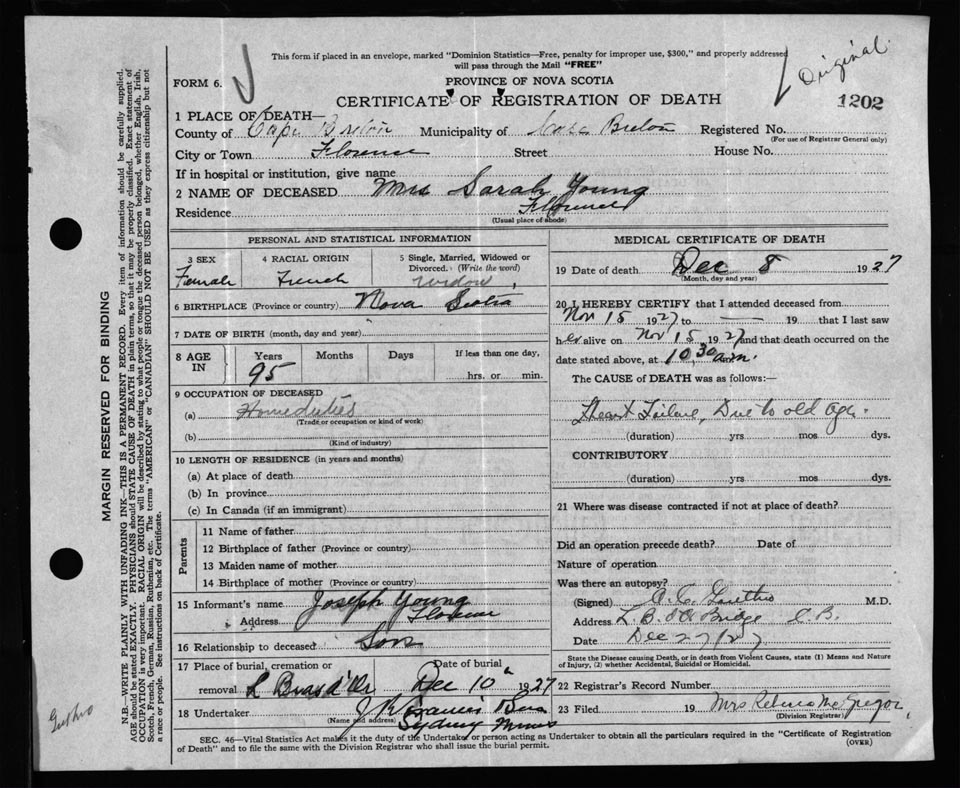 This form if placed in an envelope, marked "Dominion Statistics—Free, penalty for improper use, $300," and properly addressed
will pass through the Mail "FREE"
Original
FORM 6.
PROVINCE OF NOVA SCOTIA
CERTIFICATE OF REGISTRATION OF DEATH
1202
1 PLACE OF DEATH—
County of Cape Breton Municipality of Cape Breton Registered No.
(For use of Registrar General only)
City or Town Florence Street House No.
If in hospital or institution, give name
2 NAME OF DECEASED Mrs Sarah Young
Residence Florence
(Usual place of abode)
PERSONAL AND STATISTICAL INFORMATION
3 SEX 4 RACIAL ORIGIN 5 Single, Married, Widowed or
Divorced. (Write the word)
Female French Widow
6 BIRTHPLACE (Province or country) Nova Scotia
7 DATE OF BIRTH (month, day and year)
8 AGE IN Years Months Days If less than one day,
95 hrs. or min.
9 OCCUPATION OF DECEASED
(a) Homeduties
(Trade or occupation or kind of work)
(b)
(Kind of industry)
10 LENGTH OF RESIDENCE (in years and months)
(a) At place of death
(b) In province
(c) In Canada (if an immigrant)
Parents
11 Name of father
12 Birthplace of father (Province or country)
13 Maiden name of mother
14 Birthplace of mother (Province or country)
15 Informant's name Joseph Young
Address Florence
16 Relationship to deceased Son
17 Place of burial, cremation or Date of burial
removal L Bras d'Or Dec 10 1927
18 Undertaker
(Name and address) Sydney Mines
MEDICAL CERTIFICATE OF DEATH
19 Date of death Dec 8 1927
(Month, day and year)
20 I HEREBY CERTIFY that I attended deceased from
Nov 15 1927 to — 19 that I last saw
her alive on Nov 15 1927 and that death occurred on the
date stated above, at 10.30 a.m.
The CAUSE OF DEATH was as follows:—
Heart Failure, Due to old age.
(duration) yrs mos dys.
CONTRIBUTORY
(duration) yrs mos dys.
21 Where was disease contracted if not at place of death?
Did an operation precede death? Date of
Nature of operation
Was there an autopsy?
(Signed) M.D.
Address Bridge C.B.
Date Dec 27/27
State the Disease causing Death, or in death from Violent Causes, state (1) Means and Nature
of Injury, (2) whether Accidental, Suicidal or Homicidal.
22 Registrar's Record Number
23 Filed 19 Mrs McGregor
(Division Registrar)
SEC. 46—Vital Statistics Act makes it the duty of the Undertaker or person acting as Undertaker to obtain all the particulars required in the "Certificate of Registration
of Death" and to file the same with the Division Registrar who shall issue the burial permit.
(OVER)
MARGIN RESERVED FOR BINDING
N.B.—WRITE PLAINLY WITH UNFADING INK—THIS IS A PERMANENT RECORD. Every item of information should be carefully supplied.
AGE should be stated EXACTLY. PHYSICIANS should STATE CAUSE OF DEATH in plain terms, so that it may be properly classified. Exact statement of
OCCUPATION is very important. RACIAL ORIGIN will be described by stating to what people or tongue the deceased person belonged, whether English, Irish,
Scotch, French, German, Russian, Ruthenian, etc. The terms "AMERICAN" or "CANADIAN" SHOULD NOT BE USED as they express citizenship but not
a race or people. See instructions on back of Certificate.